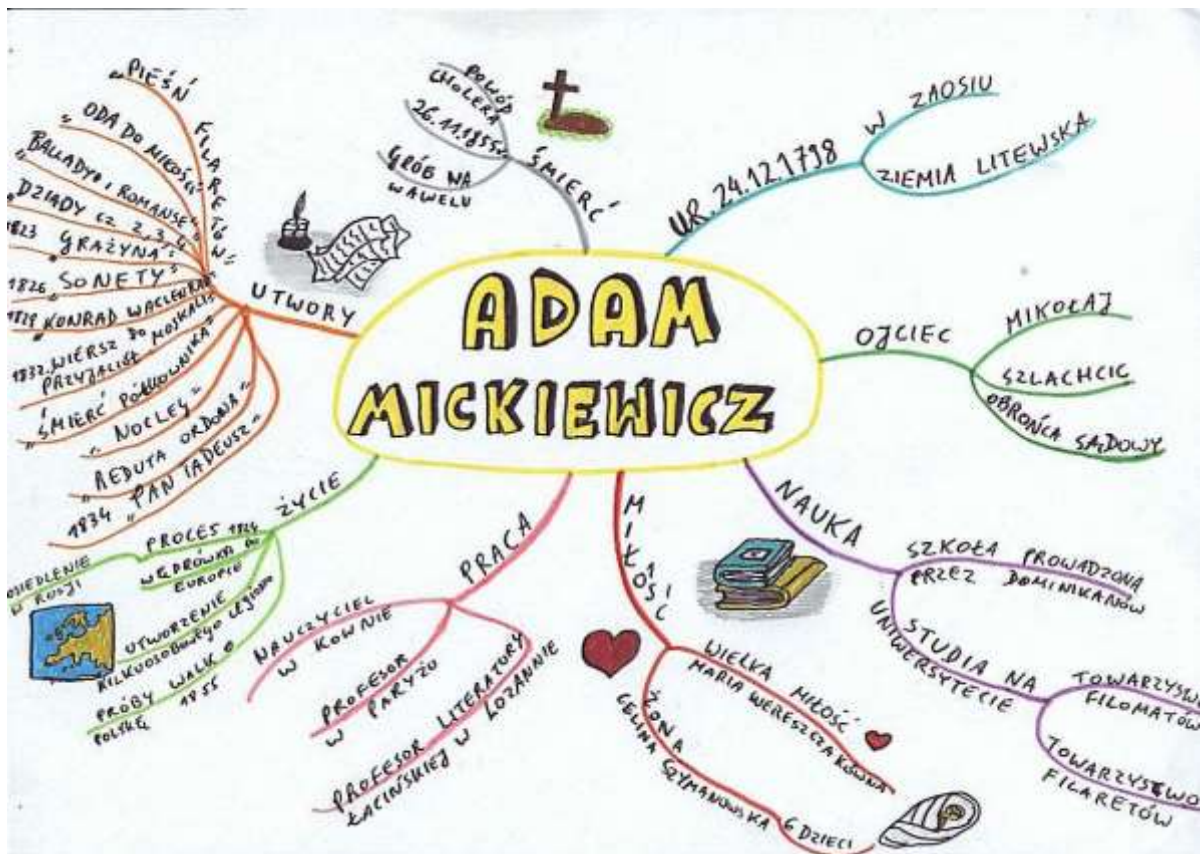 ADAM
MICKIEWICZ
UR. 24.12.1798
W ZAOSIU
ZIEMIA LITEWSKA
OJCIEC
MIKOŁAJ
SZLACHCIC
OBROŃCA SĄDOWY
NAUKA
SZKOŁA PROWADZONA
PRZEZ DOMINIKANÓW
STUDIA NA
UNIWERSYTECIE
TOWARZYSTWO
FILOMATÓW
TOWARZYSTWO
FILARETÓW
MIŁOŚĆ
WIELKA MIŁOŚĆ
MARIA WERESZCZAKÓWNA
ŻONA
CELINA SZYMANOWSKA
6 DZIECI
PRACA
NAUCZYCIEL
W KOWNIE
PROFESOR
W PARYŻU
PROFESOR LITERATURY
ŁACIŃSKIEJ W LOZANNIE
ŻYCIE
PROCES 1824
OSIEDLENIE
W ROSJI
WĘDRÓWKA PO
EUROPIE
UTWORZENIE
KILKUOSOBOWEGO LEGIONU
PRÓBY WALK O
POLSKĘ 1855
UTWORY
"PIEŚŃ FILARETÓW"
"ODA DO MŁOŚCI"
"BALLADY I ROMANSE"
"DZIADY CZ 2,3,4"
1823 "GRAŻYNA"
1826 "SONETY"
KONRAD
1832 WIERSZ DO
PRZYJACIÓŁ MOSKALI
"ŚMIERĆ PÓŁKOWNIKA"
"NOCLEG"
"REDUTA ORDONA"
1834 "PAN TADEUSZ"
ŚMIERĆ
POWÓD
CHOLERA
26.11.1855
GRÓB NA
WAWELU